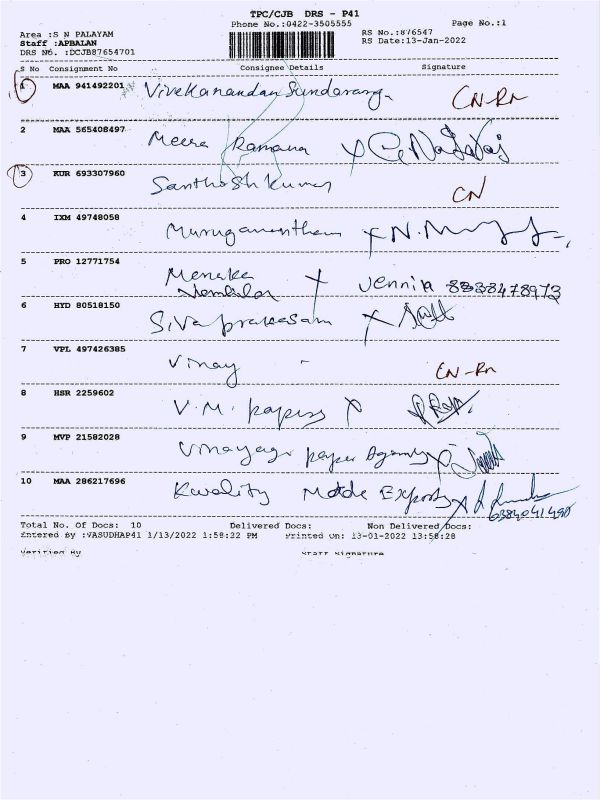 TPC/CJB DRS - P41
Phone No.:0422-3505555 Page No.:1
Area :S N PALAYAM RS No.:876547
Staff :APBALAN RS Date:13-Jan-2022
DRS No. :DCJB87654701
S No Consignment No Consignee Details Signature
1 MAA 941492201 Vivekanandan CN-Rn
2 MAA 565408497 Meera Ramana
3 KUR 693307960 Santhosh kumar CN
4 IXM 49748058 Muruganantham
5 PRO 12771754 Menaka Jennila
6 HYD 80518150 Sivaprakasam
7 VPL 497426385 Vinay CN-Rn
8 HSR 2259602 V.M. papers
9 MVP 21582028 Vinayaga paper Agency
10 MAA 286217696 Kwality Exports
Total No. Of Docs: 10 Delivered Docs: Non Delivered Docs:
Entered By :VASUDHAP41 1/13/2022 1:58:22 PM Printed On: 13-01-2022 13:58:28
Verified By Staff Signature